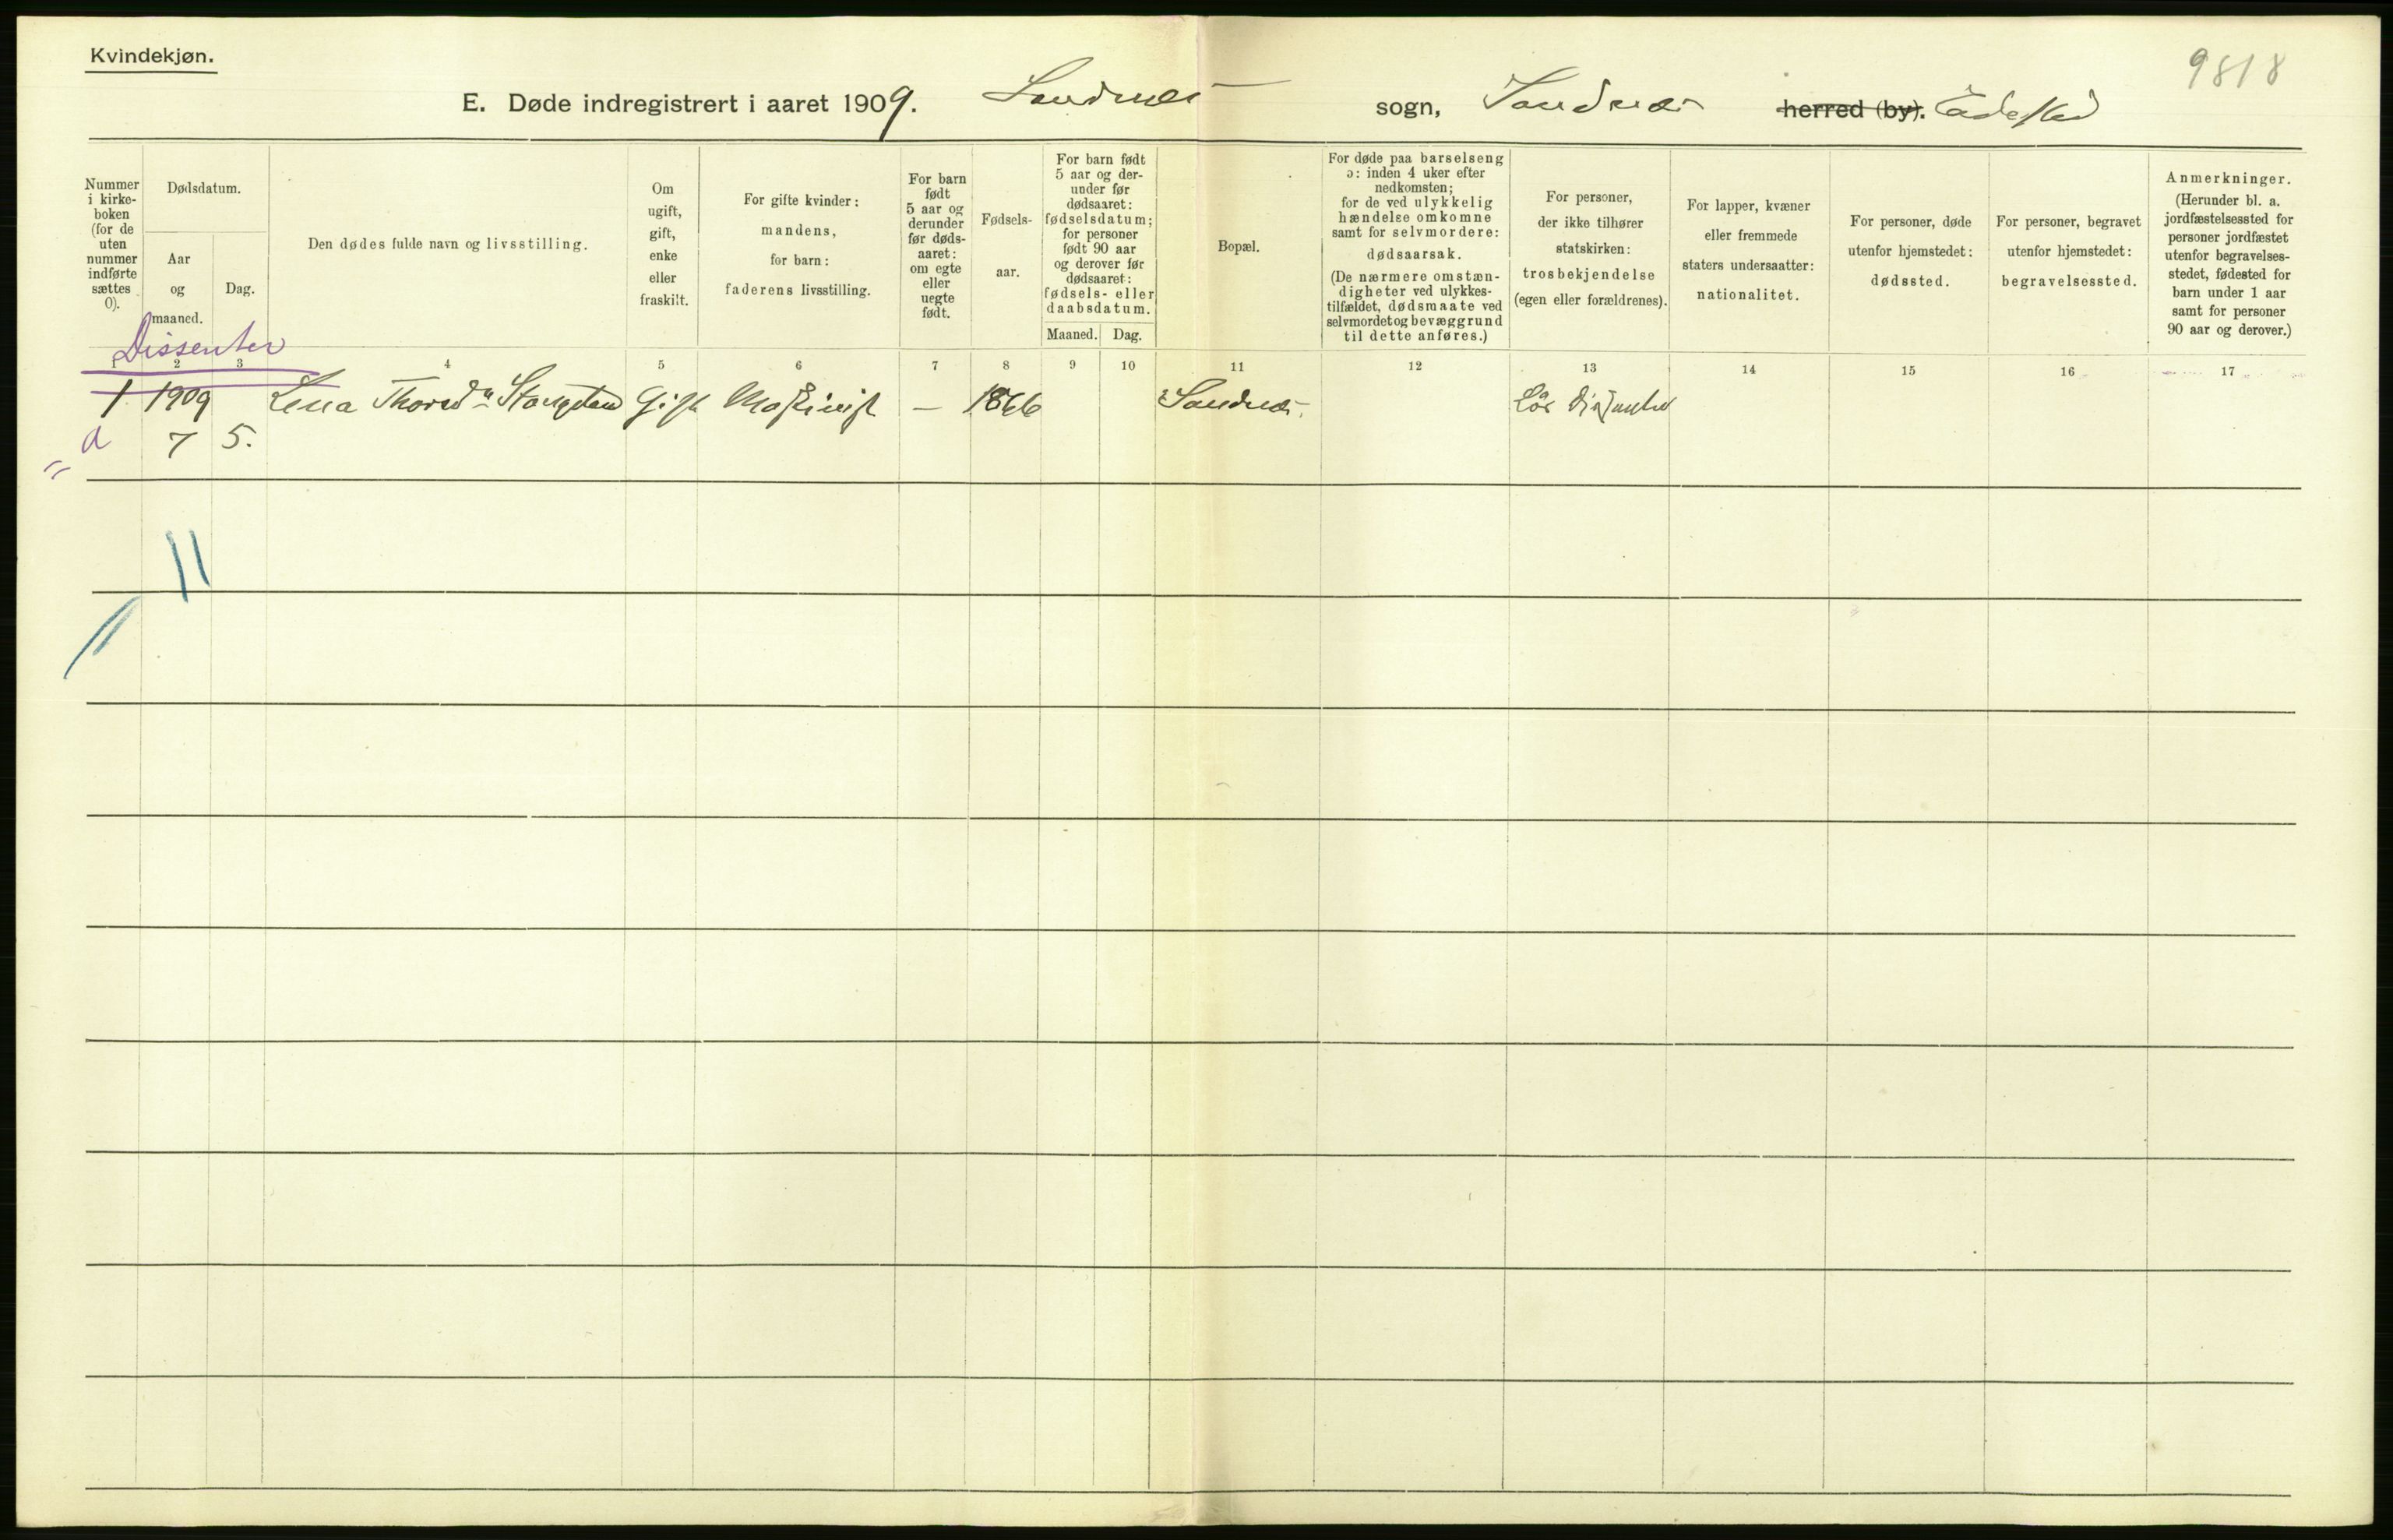 Kvindekjøn.
9818
E. Døde indregistrert i aaret 1909. Sandnes sogn, Sandnæs herred (by). Ladested
Nummer
i kirke-
boken
(for de
uten
nummer
indførte
sættes
0).
Dødsdatum.
Aar
og
maaned.
Dag.
Den dødes fulde navn og livsstilling.
Om
ugift,
gift,
enke
eller
fraskilt.
For gifte kvinder:
mandens,
for barn:
faderens livsstilling.
For barn
født
5 aar og
derunder
før døds-
aaret:
om egte
eller
uegte
født.
Fødsels-
aar.
For barn født
5 aar og der-
under før
dødsaaret:
fødselsdatum;
for personer
født 90 aar
og derover før
dødsaaret:
fødsels- eller
daabsdatum.
Maaned.
Dag.
Bopæl.
For døde paa barselseng
ɔ: inden 4 uker efter
nedkomsten;
for de ved ulykkelig
hændelse omkomne
samt for selvmordere:
dødsaarsak.
(De nærmere omstæn-
digheter ved ulykkes-
tilfældet, dødsmaate ved
selvmordet og bevæggrund
til dette anføres.)
For personer,
der ikke tilhører
statskirken:
trosbekjendelse
(egen eller forældrenes).
For lapper, kvæner
eller fremmede
staters undersaatter:
nationalitet.
For personer, døde
utenfor hjemstedet:
dødssted.
For personer, begravet
utenfor hjemstedet:
begravelsessted.
Anmerkninger.
(Herunder bl. a.
jordfæstelsessted for
personer jordfæstet
utenfor begravelses-
stedet, fødested for
barn under 1 aar
samt for personer
90 aar og derover.)
Dissenter
1 2 3 4 5 6 7 8 9 10 11 12 13 14 15 16 17
1 1909 Lena Thorsdn Stangeland Gift Maskinist — 1866 Sandnæs.
d 7 5.